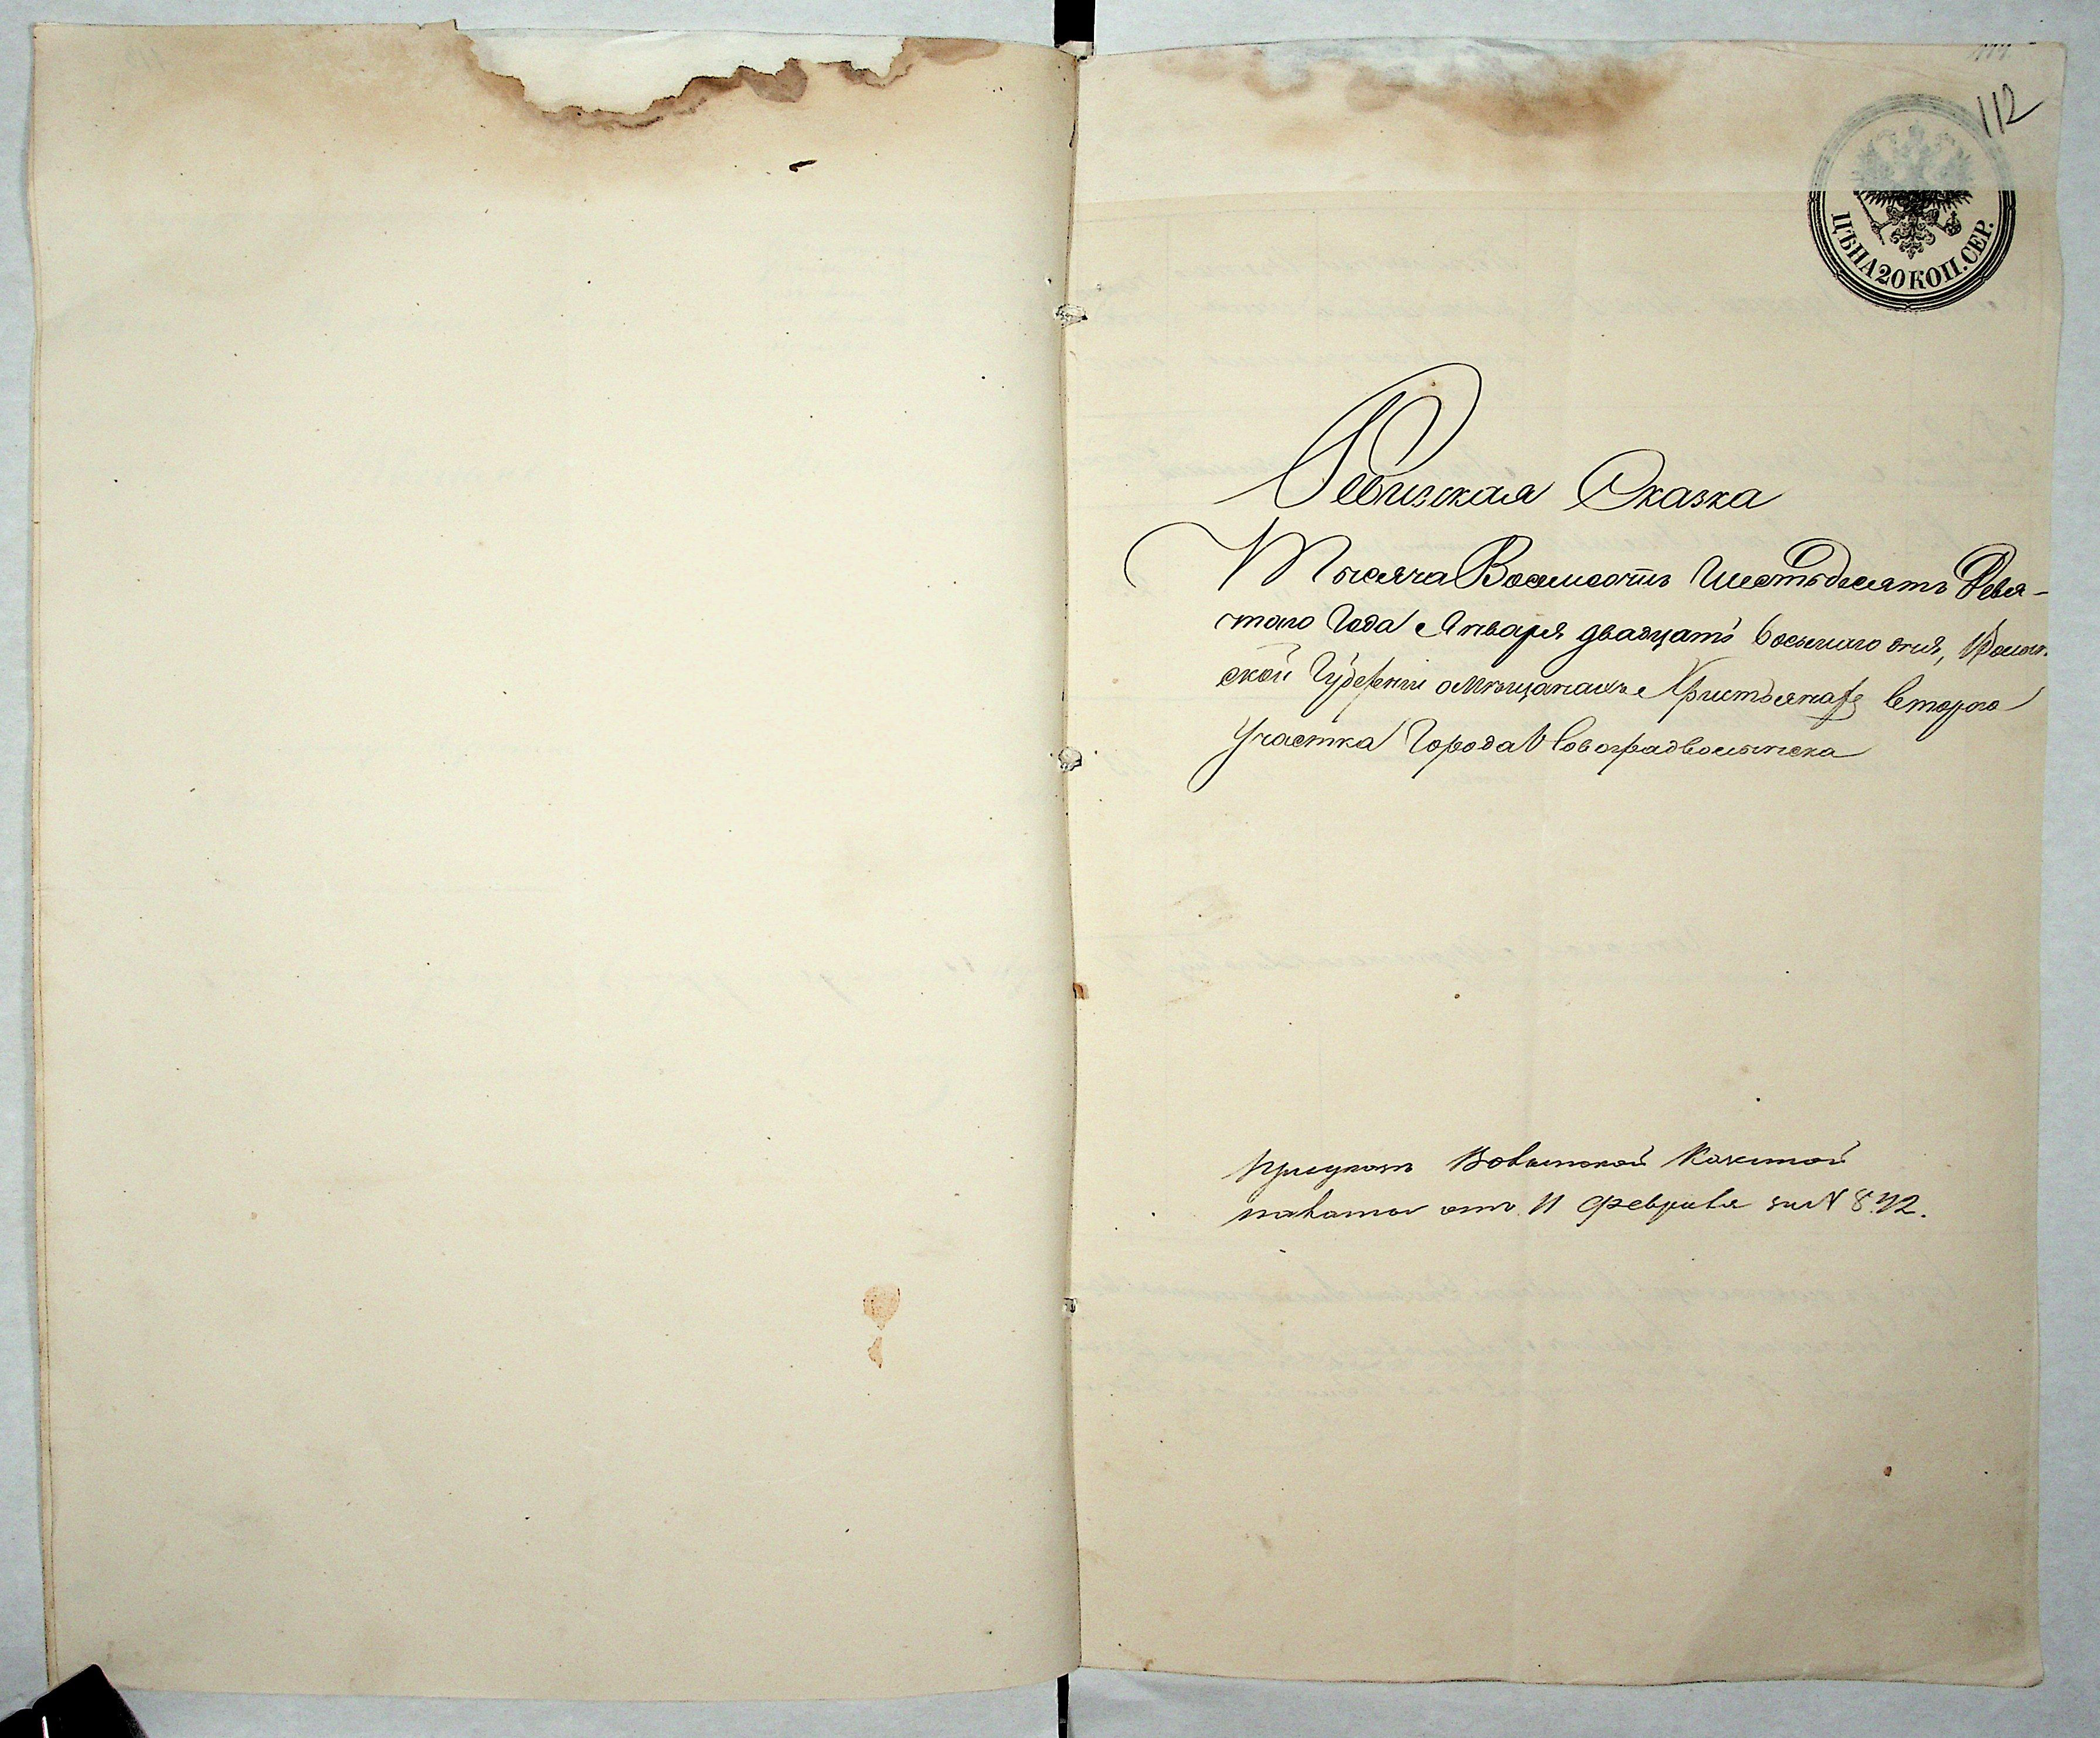 112
ЦѢНА 20 КОП. СЕР.
Ревизская Сказка
Тысяча Восемсотъ Шестьдесятъ Девя-
таго Года Января двадцать восьмаго дня, Волын-
ской Губерніи о мѣщанахъ Христьянахъ второго
Участка Города Новоградволынска
При указѣ Волынской Казенной
палаты отъ 11 Февраля за N 872.